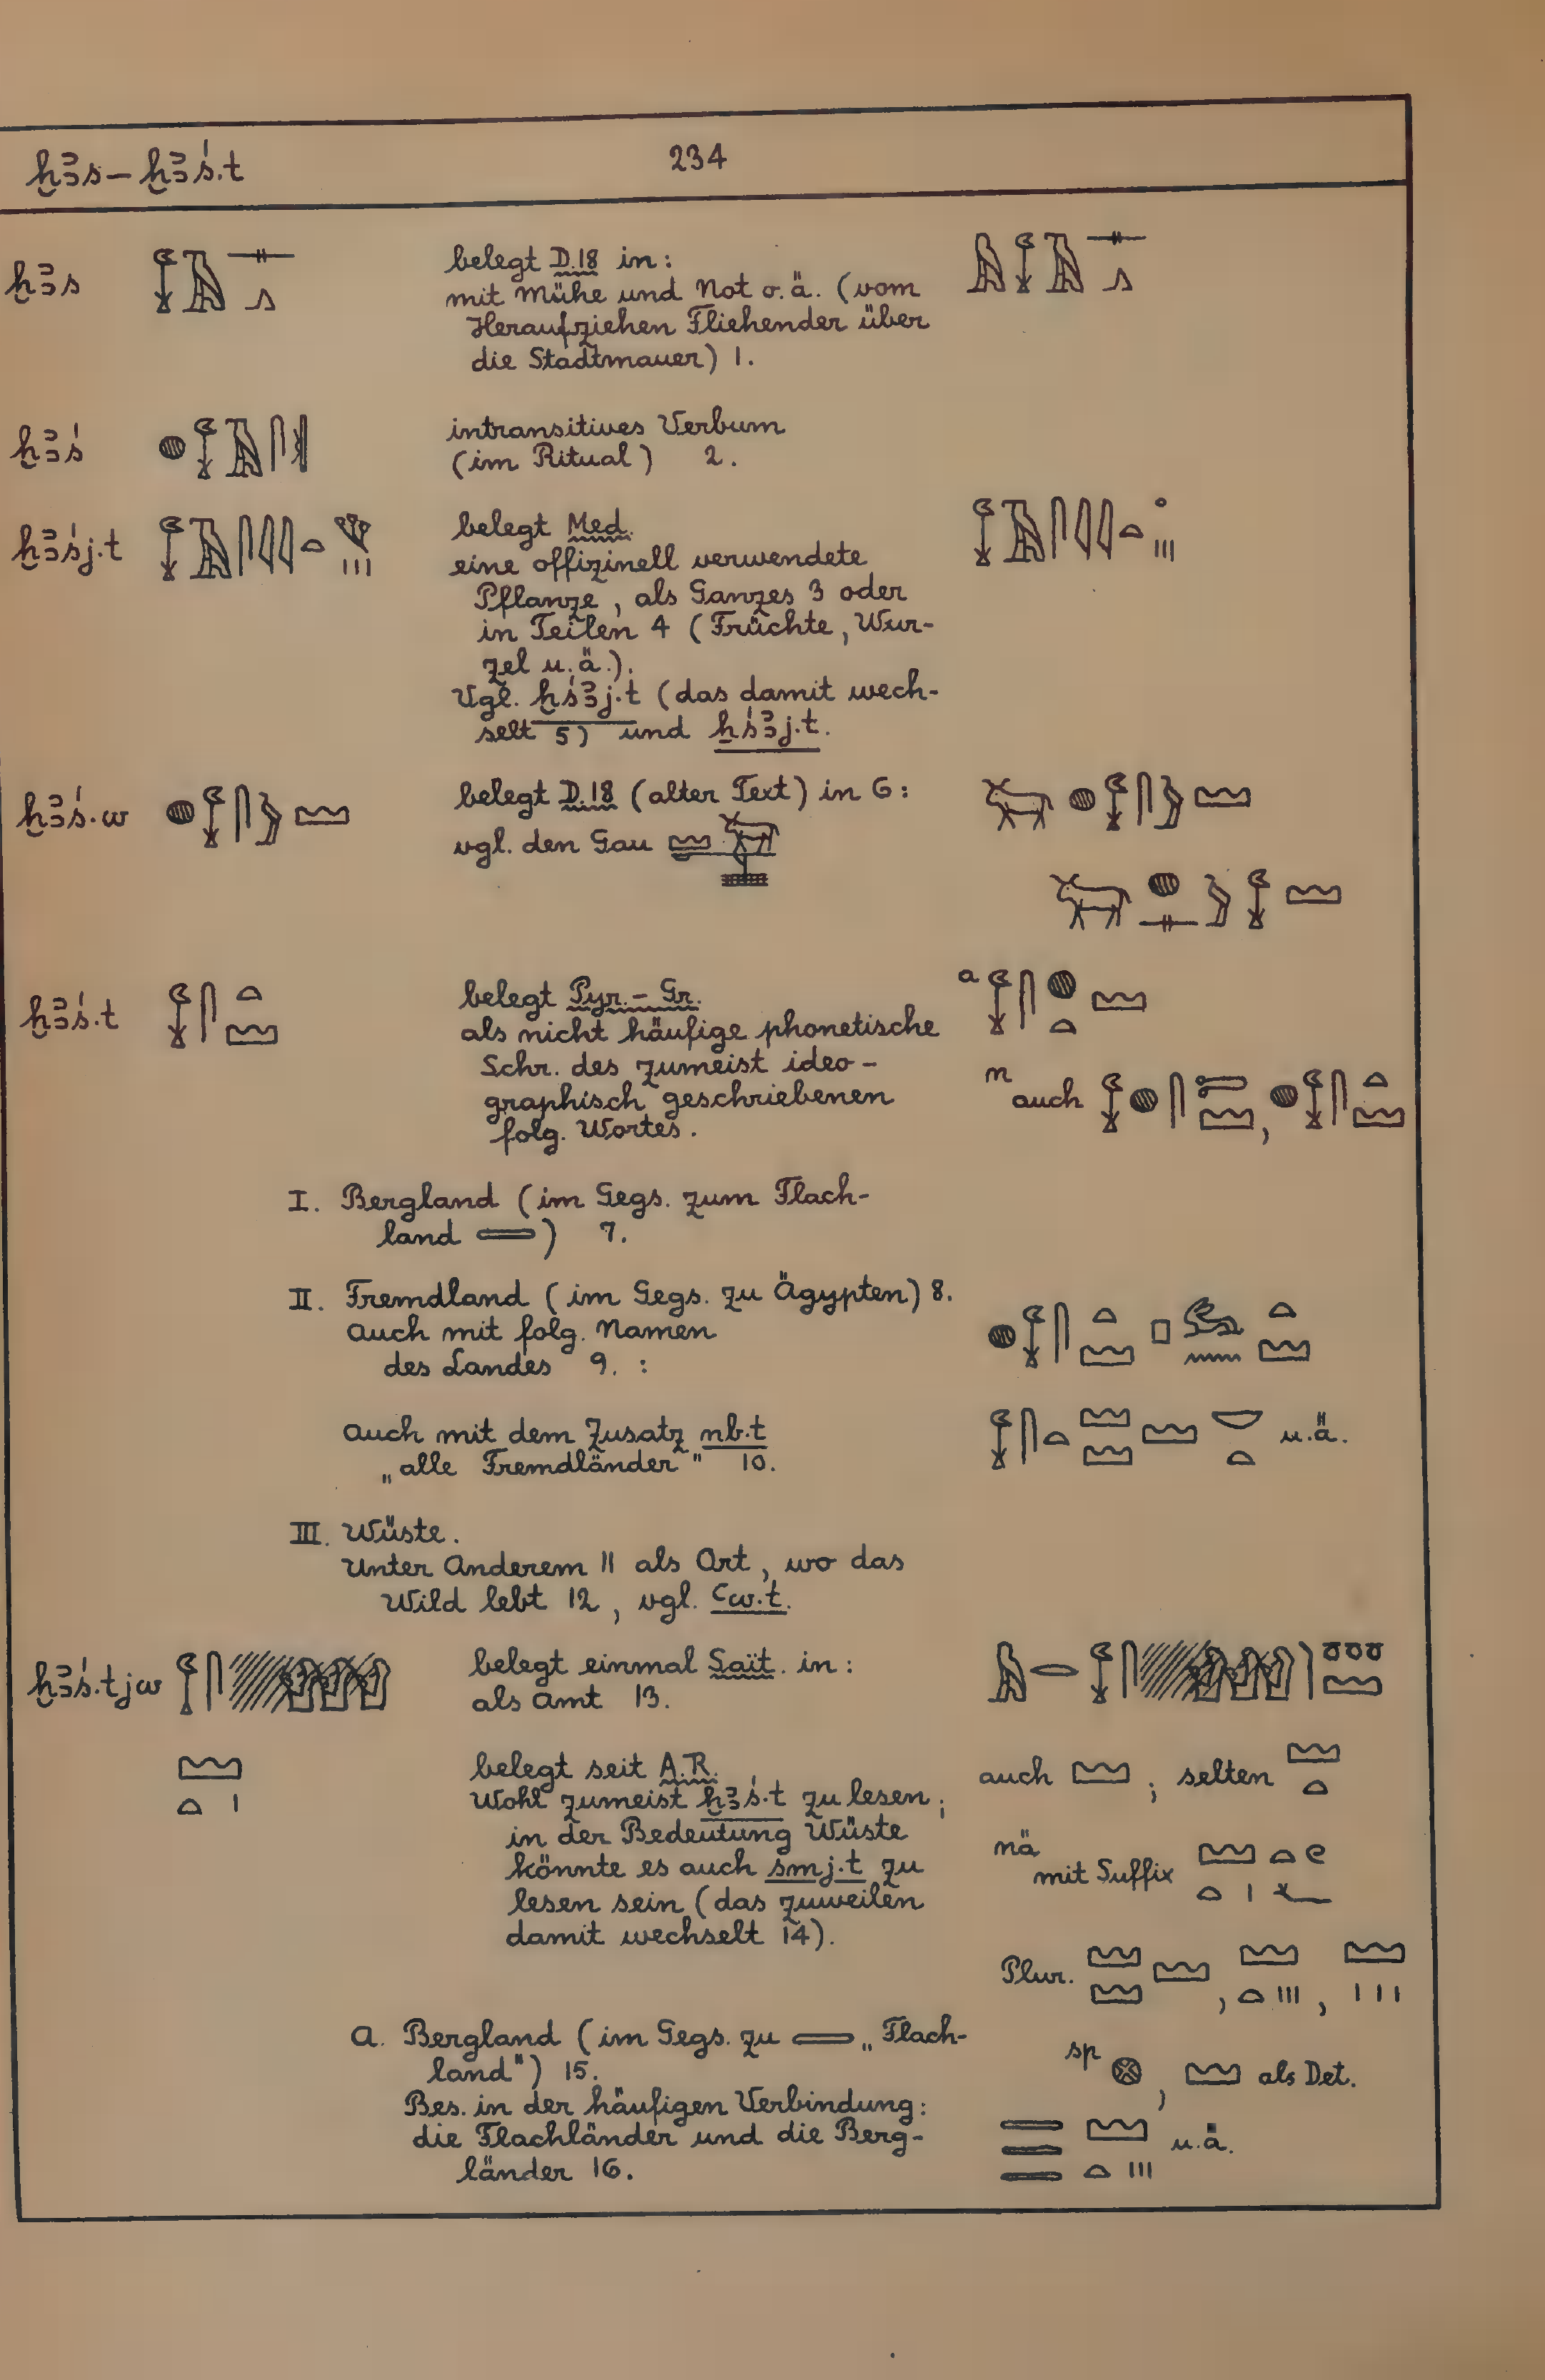 ḫꜣs – ḫꜣś.t 234
ḫꜣs belegt D.18 in:
mit Mühe und Not o.ä. (vom
Heraufziehen Fliehender über
die Stadtmauer) 1.
ḫꜣś intransitives Verbum
(im Ritual) 2.
ḫꜣśj.t belegt Med.
eine offizinell verwendete
Pflanze, als Ganzes 3 oder
in Teilen 4 (Früchte, Wur-
zel u.ä.).
Vgl. ẖśꜣj.t (das damit wech-
selt 5) und ẖśꜣj.t.
ḫꜣś.w belegt D.18 (alter Text) in 6:
vgl. den Gau
ḫꜣś.t belegt Pyr. – Gr. a
als nicht häufige phonetische
Schr. des zumeist ideo-
graphisch geschriebenen
folg. Wortes.
n auch ,
I. Bergland (im Gegs. zum Flach-
land ) 7.
II. Fremdland (im Gegs. zu Ägypten) 8.
Auch mit folg. Namen
des Landes 9. :
Auch mit dem Zusatz nb.t u.ä.
„alle Fremdländer" 10.
III. Wüste.
Unter Anderem 11 als Ort, wo das
Wild lebt 12, vgl. ꜥw.t.
ḫꜣś.tjw belegt einmal Saït. in:
als Amt 13.
belegt seit A.R. auch ; selten
Wohl zumeist ḫꜣś.t zu lesen;
in der Bedeutung Wüste
könnte es auch śmj.t zu
lesen sein (das zuweilen
damit wechselt 14).
nä mit Suffix
Plur. , ,
A. Bergland (im Gegs. zu „Flach-
land") 15.
sp , als Det.
Bes. in der häufigen Verbindung:
die Flachländer und die Berg- u.ä.
länder 16.